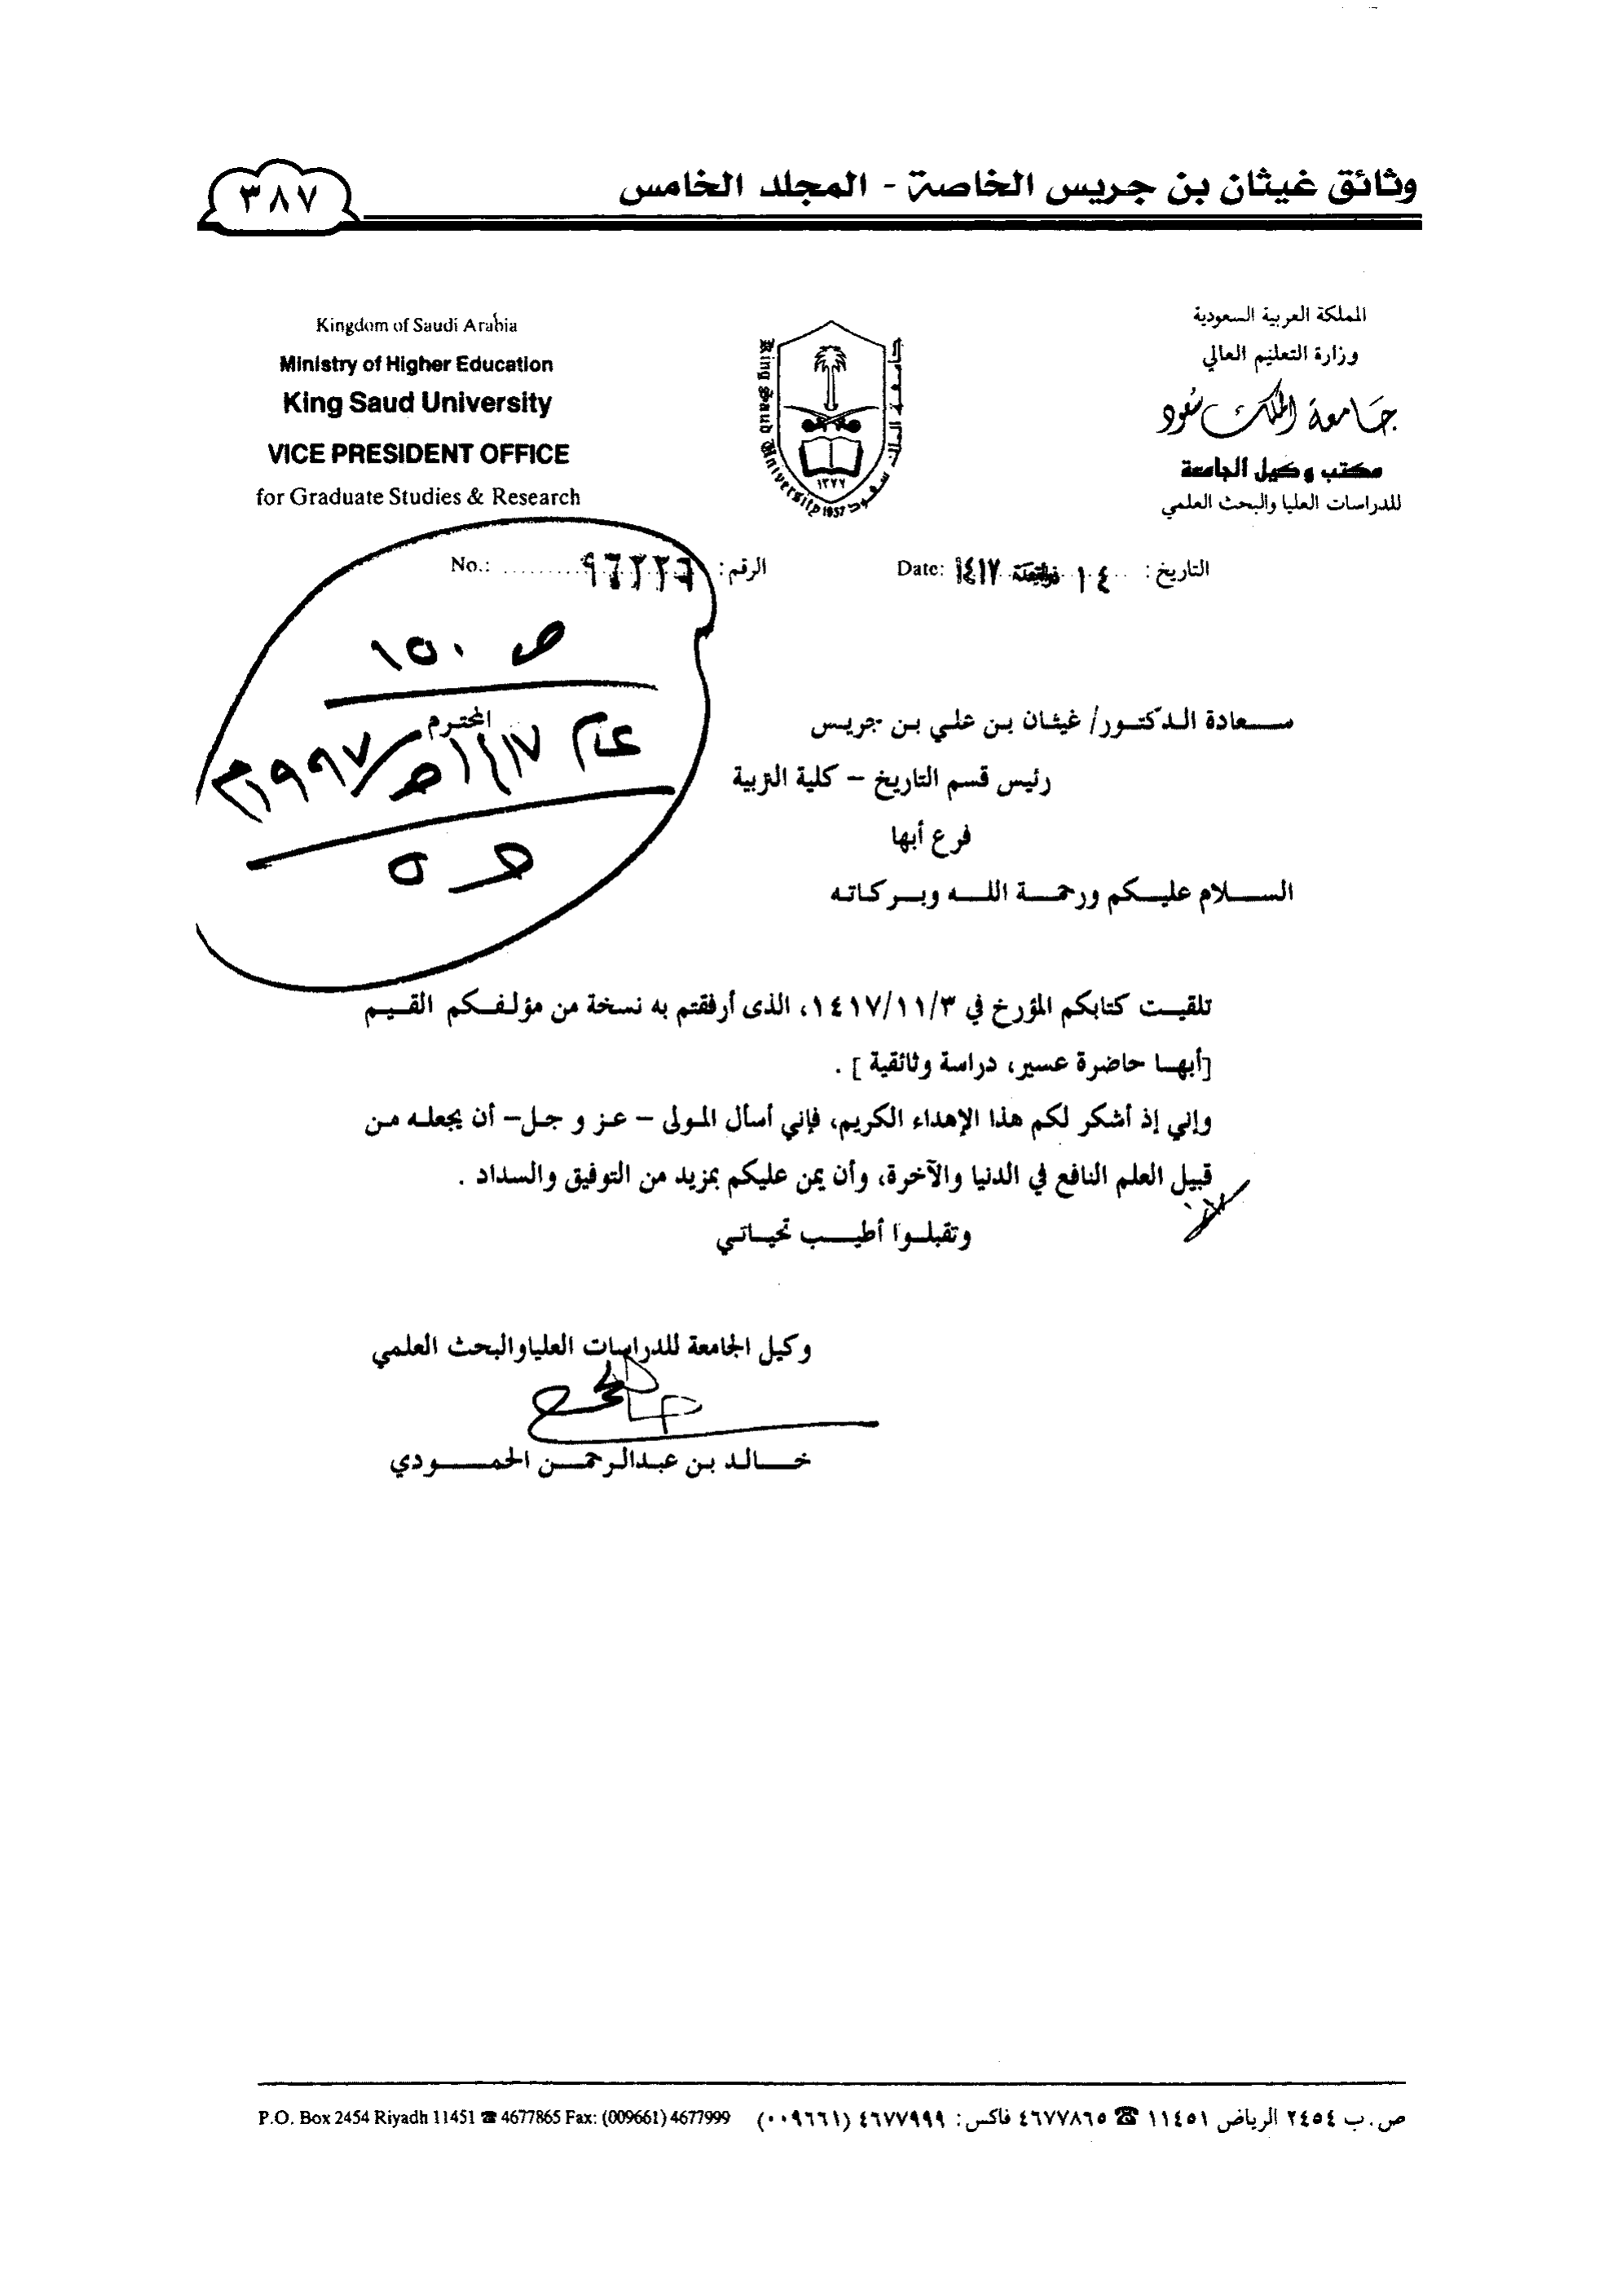 وثائق غيثان بن جريس الخاصة - المجلد الخامس
٣٨٧
المملكة العربية السعودية
وزارة التعليم العالي
جامعة الملك سعود
مكتب وكيل الجامعة
للدراسات العليا والبحث العلمي
Kingdom of Saudi Arabia
Ministry of Higher Education
King Saud University
VICE PRESIDENT OFFICE
for Graduate Studies & Research
King Saud University 1957
١٣٧٧
التاريخ: ١٤ ذوالقعدة ١٤١٧ Date:
الرقم: No.:
ص ١٥٠
عام ١٤١٧هـ/١٩٩٧م
سعادة الدكتور/ غيثان بن علي بن جريس المحترم
رئيس قسم التاريخ – كلية التربية
فرع أبها
السلام عليكم ورحمة الله وبركاته
تلقيت كتابكم المؤرخ في ١٤١٧/١١/٣، الذى أرفقتم به نسخة من مؤلفكم القيم
[أبها حاضرة عسير، دراسة وثائقية ] .
وإني إذ أشكر لكم هذا الإهداء الكريم، فإني أسأل المولى – عز و جل– أن يجعله من
قبيل العلم النافع في الدنيا والآخرة، وأن يمن عليكم بمزيد من التوفيق والسداد .
وتقبلوا أطيب تحياتي
وكيل الجامعة للدراسات العلياوالبحث العلمي
خالد بن عبدالرحمن الحمودي
ص.ب ٢٤٥٤ الرياض ١١٤٥١ ☎ ٤٦٧٧٨٦٥ فاكس: ٤٦٧٧٩٩٩ (٠٠٩٦٦١)
P.O. Box 2454 Riyadh 11451 ☎ 4677865 Fax: (009661) 4677999